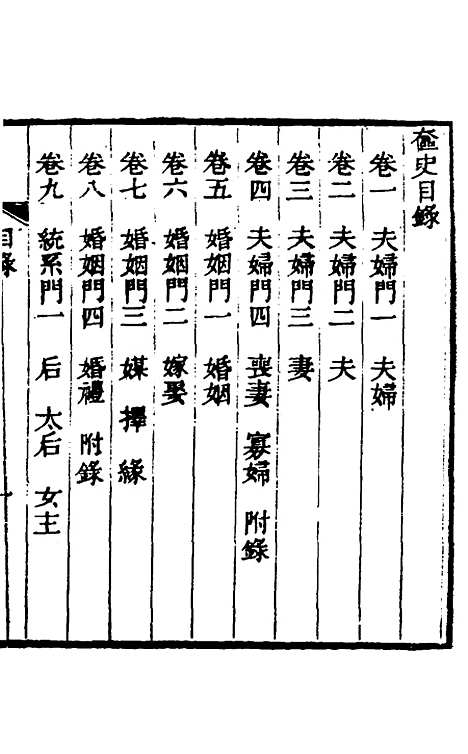 奩史目錄
卷一 夫婦門一 夫婦
卷二 夫婦門二 夫
卷三 夫婦門三 妻
卷四 夫婦門四 喪妻 寡婦 附錄
卷五 婚姻門一 婚姻
卷六 婚姻門二 嫁娶
卷七 婚姻門三 媒 擇 緣
卷八 婚姻門四 婚禮 附錄
卷九 統系門一 后 太后 女主
目錄 一